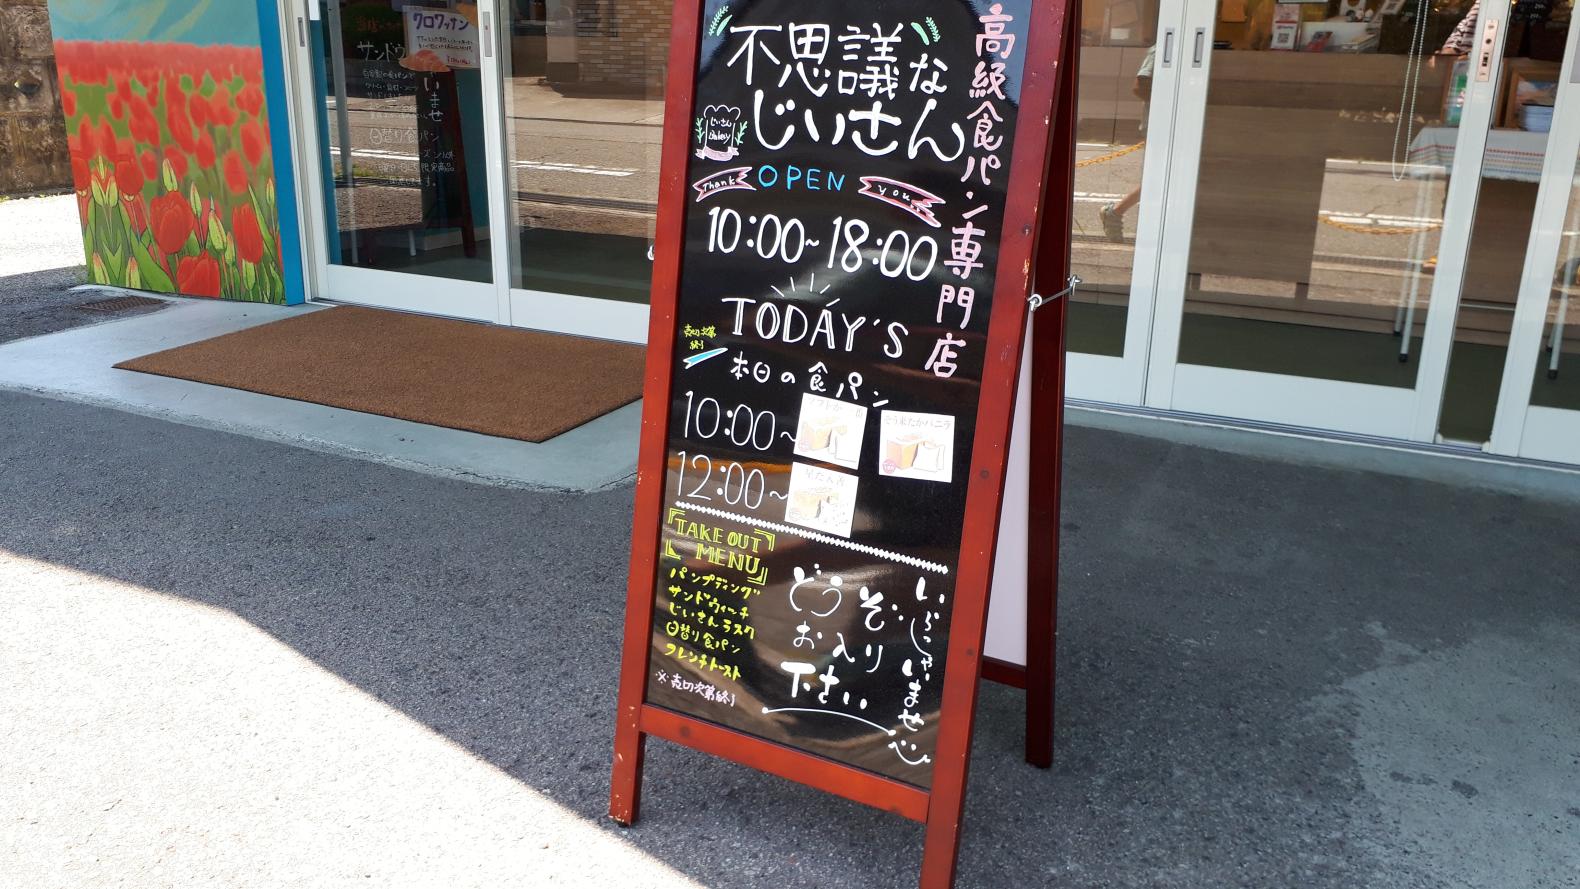 クロワッサン
サンドウ
日替り食パン
不思議な
じいさん
高級食パン専門店
じいさん
Bakery
Thank
OPEN
you
10:00~18:00
TODAY'S
売切次第
終り
本日の食パン
10:00~
12:00~
TAKE OUT
MENU
パンプディング
サンドウィッチ
じいさんラスク
日替り食パン
フレンチトースト
※売切次第終り
いらっしゃいませ
どうぞ
お入り
下さい